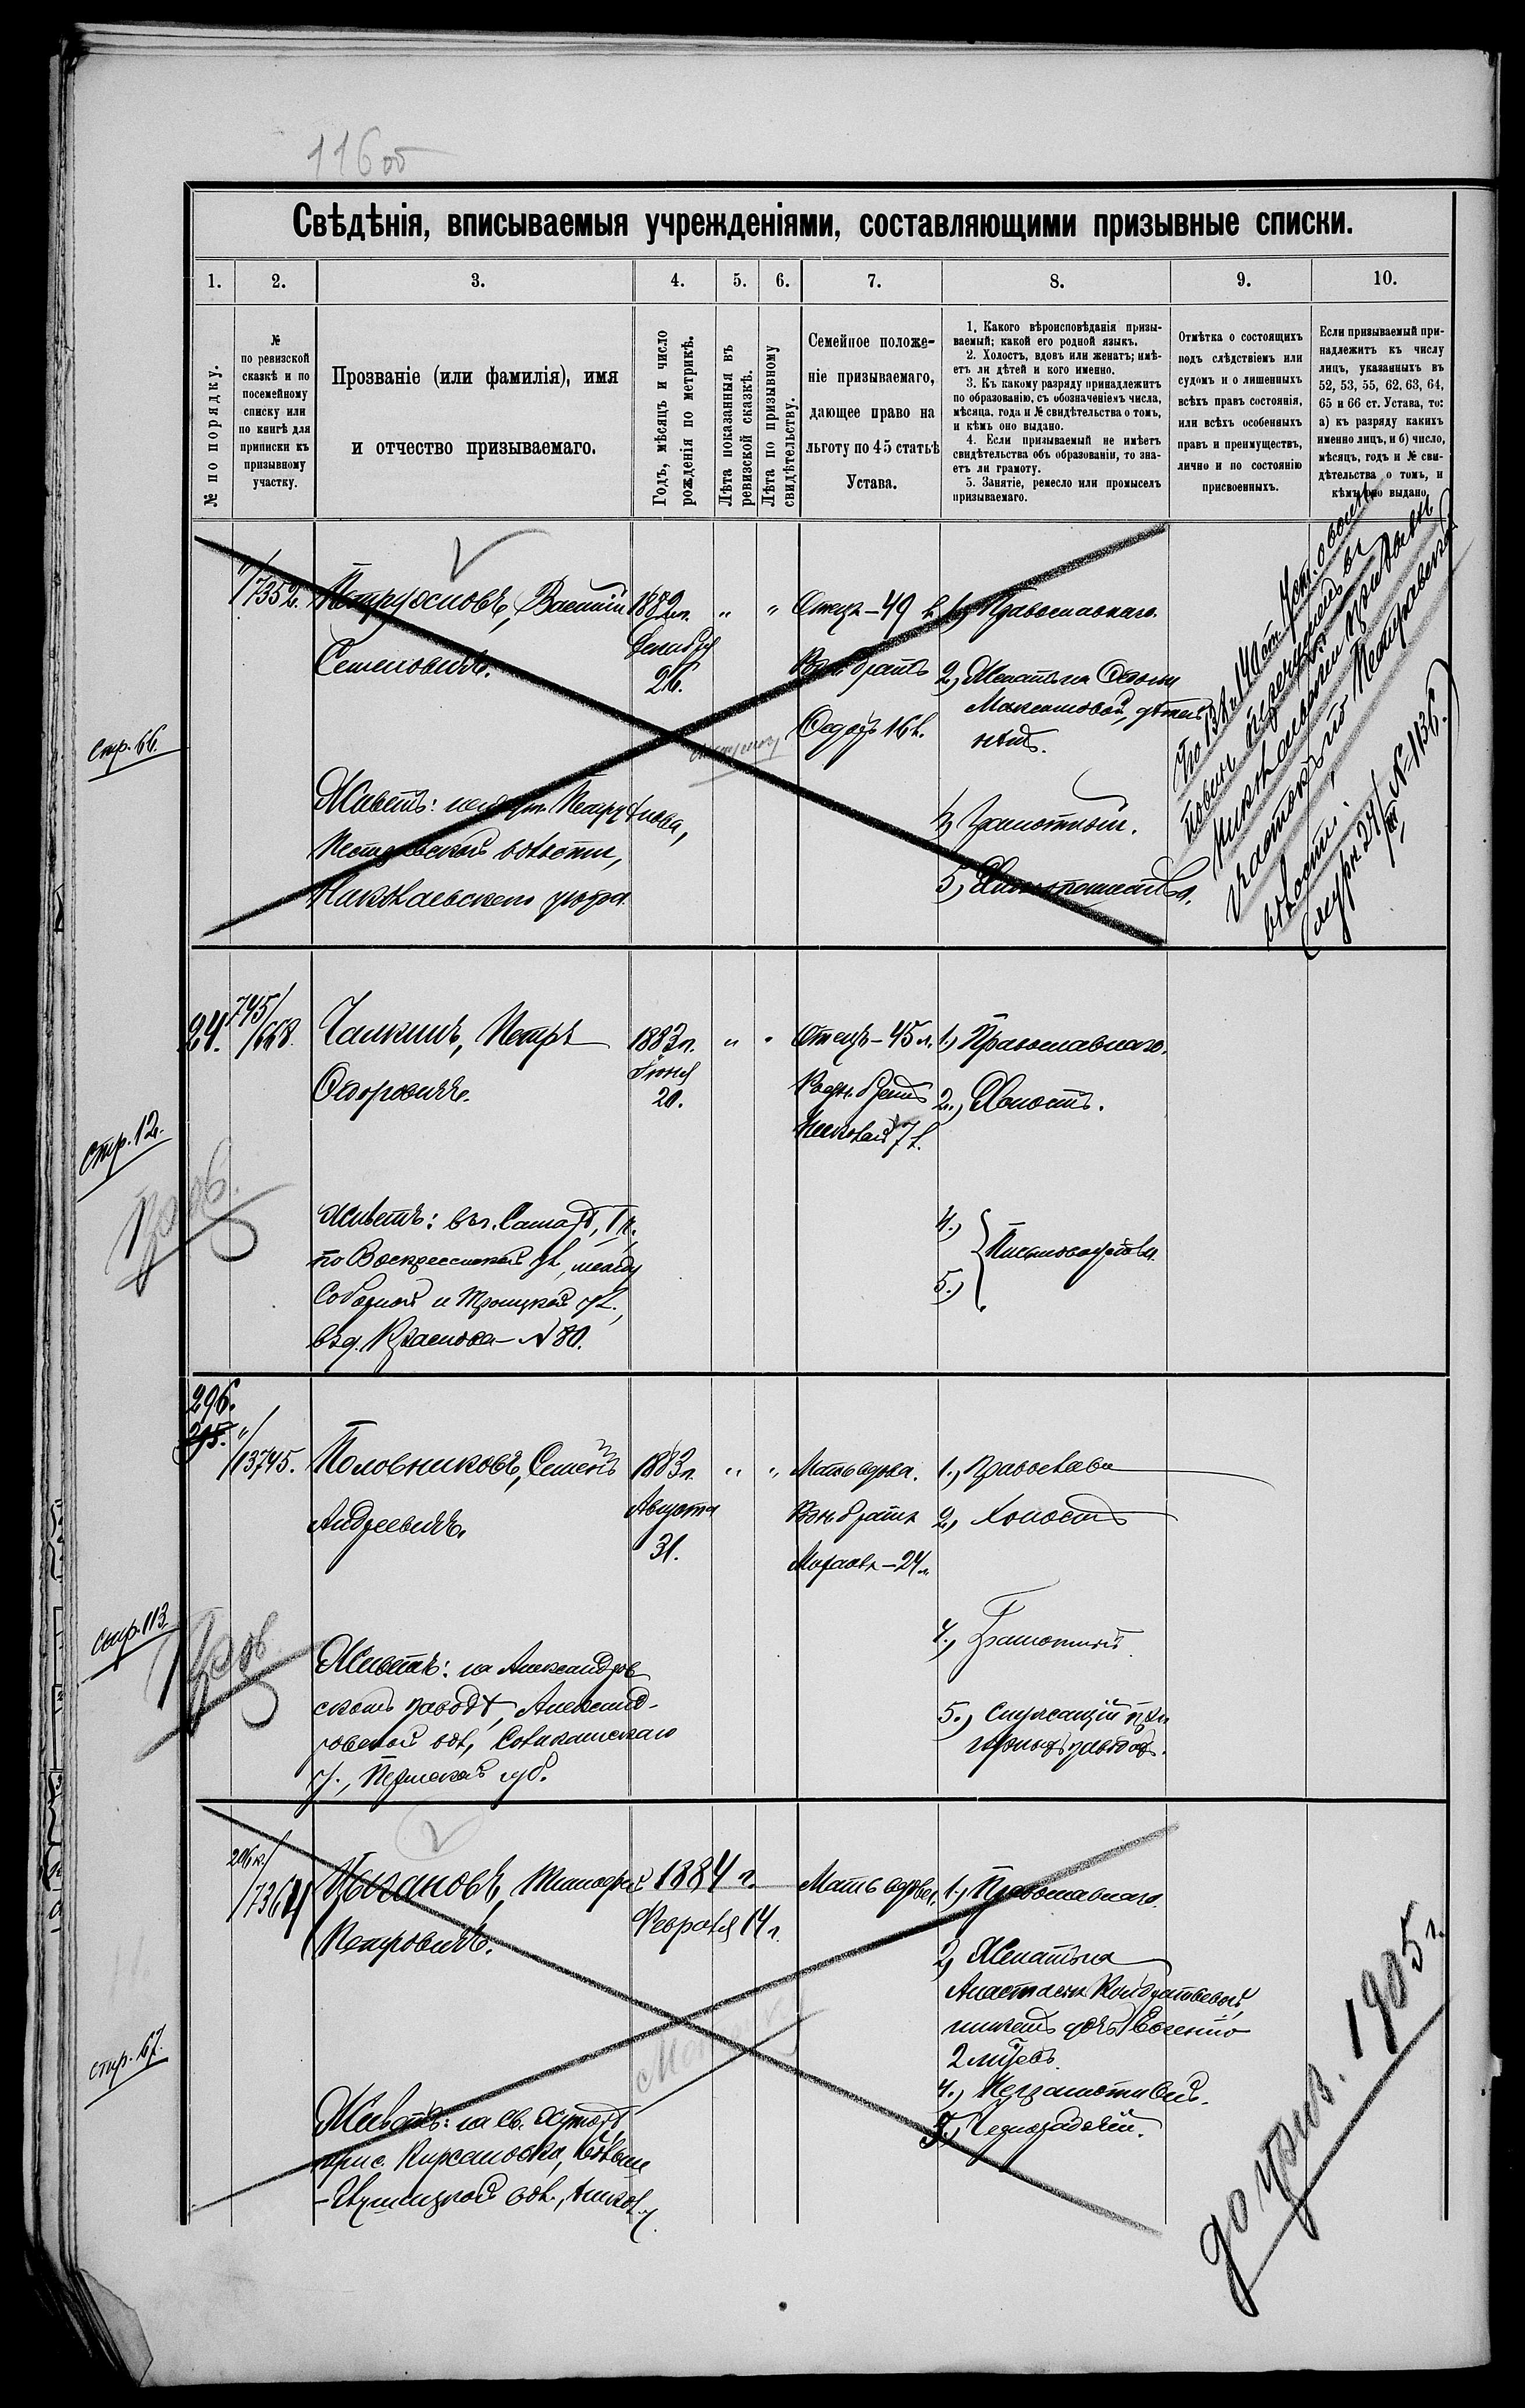 116 об
Свѣдѣнія, вписываемыя учрежденіями, составляющими призывные списки.
1. 2. 3. 4. 5. 6. 7. 8. 9. 10.
№ по порядку.
№
по ревизской
сказкѣ и по
посемейному
списку или
по книгѣ для
приписки къ
призывному
участку.
Прозваніе (или фамилія), имя
и отчество призываемаго.
Годъ, мѣсяцъ и число
рожденія по метрикѣ.
Лѣта показанныя въ
ревизской сказкѣ.
Лѣта по призывному
свидѣтельству.
Семейное положе-
ніе призываемаго,
дающее право на
льготу по 45 статьѣ
Устава.
1. Какого вѣроисповѣданія призы-
ваемый; какой его родной языкъ.
2. Холостъ, вдовъ или женатъ; имѣ-
етъ ли дѣтей и кого именно.
3. Къ какому разряду принадлежитъ
по образованію, съ обозначеніемъ числа,
мѣсяца, года и № свидѣтельства о томъ,
и кѣмъ оно выдано.
4. Если призываемый не имѣетъ
свидѣтельства объ образованіи, то зна-
етъ ли грамоту.
5. Занятіе, ремесло или промыселъ
призываемаго.
Отмѣтка о состоящихъ
подъ слѣдствіемъ или
судомъ и о лишенныхъ
всѣхъ правъ состоянія,
или всѣхъ особенныхъ
правъ и преимуществъ,
лично и по состоянію
присвоенныхъ.
Если призываемый при-
надлежитъ къ числу
лицъ, указанныхъ въ
52, 53, 55, 62, 63, 64,
65 и 66 ст. Устава, то:
а) къ разряду какихъ
именно лицъ, и б) число,
мѣсяцъ, годъ и № сви-
дѣтельства о томъ, и
кѣмъ оно выдано
стр. 66.
"/7352.
Василій
Семеновичъ.
1882 г.
Декабря
26.
" "
Отецъ - 49 л.
братъ
Федоръ 16 л.
1) Православнаго.
2) Женатъ на
Максимовой, дѣтей
нѣтъ.
4) Грамотный.
5) Хлѣбопашествъ.
Живетъ:
волости,
Николаевскаго уѣзда
№ 1136.)
стр. 12.
24.
745/668.
Чалкинъ, Петръ
Федоровичъ.
1883 г.
Іюня
20.
" "
Отецъ - 45 л.
Родн. братъ
Николай 7 л.
1.) Православнаго.
2.) Холостъ.
4.)
5.)
Письмоводство.
Живетъ: въ г. Самарѣ, 1 ч.
по Воскресенской ул., между
Соборной и Троицкой ул.,
въ д. Краснова - № 80.
стр. 113
296.
295.
"/13745.
Половниковъ, Семенъ
Андреевичъ.
1883 г.
Августа
31.
" "
Мать вдова.
братъ
24 л.
1.) Православн
2.) Холостъ
4.) Грамотный
5.) Служащій при
заводѣ.
Живетъ: на Александров
скомъ заводѣ, Александ-
ровской вол., Соликамскаго
у., Пермской губ.
стр. 67.
206 к./7364
Цыгановъ, Тимофей
Петровичъ.
1884 г.
Февраля 14 г.
Мать вдова.
1.) Православнаго.
2) Женатъ на
Анастасіи Кондратьевой,
имѣетъ дочь Евгенію
2 мѣсяц.
4.) Неграмотный.
5.) Чернорабочій.
Живетъ: на св. хуторѣ
при с. Кирсановка,
вол.,
до приз. 1905 г.